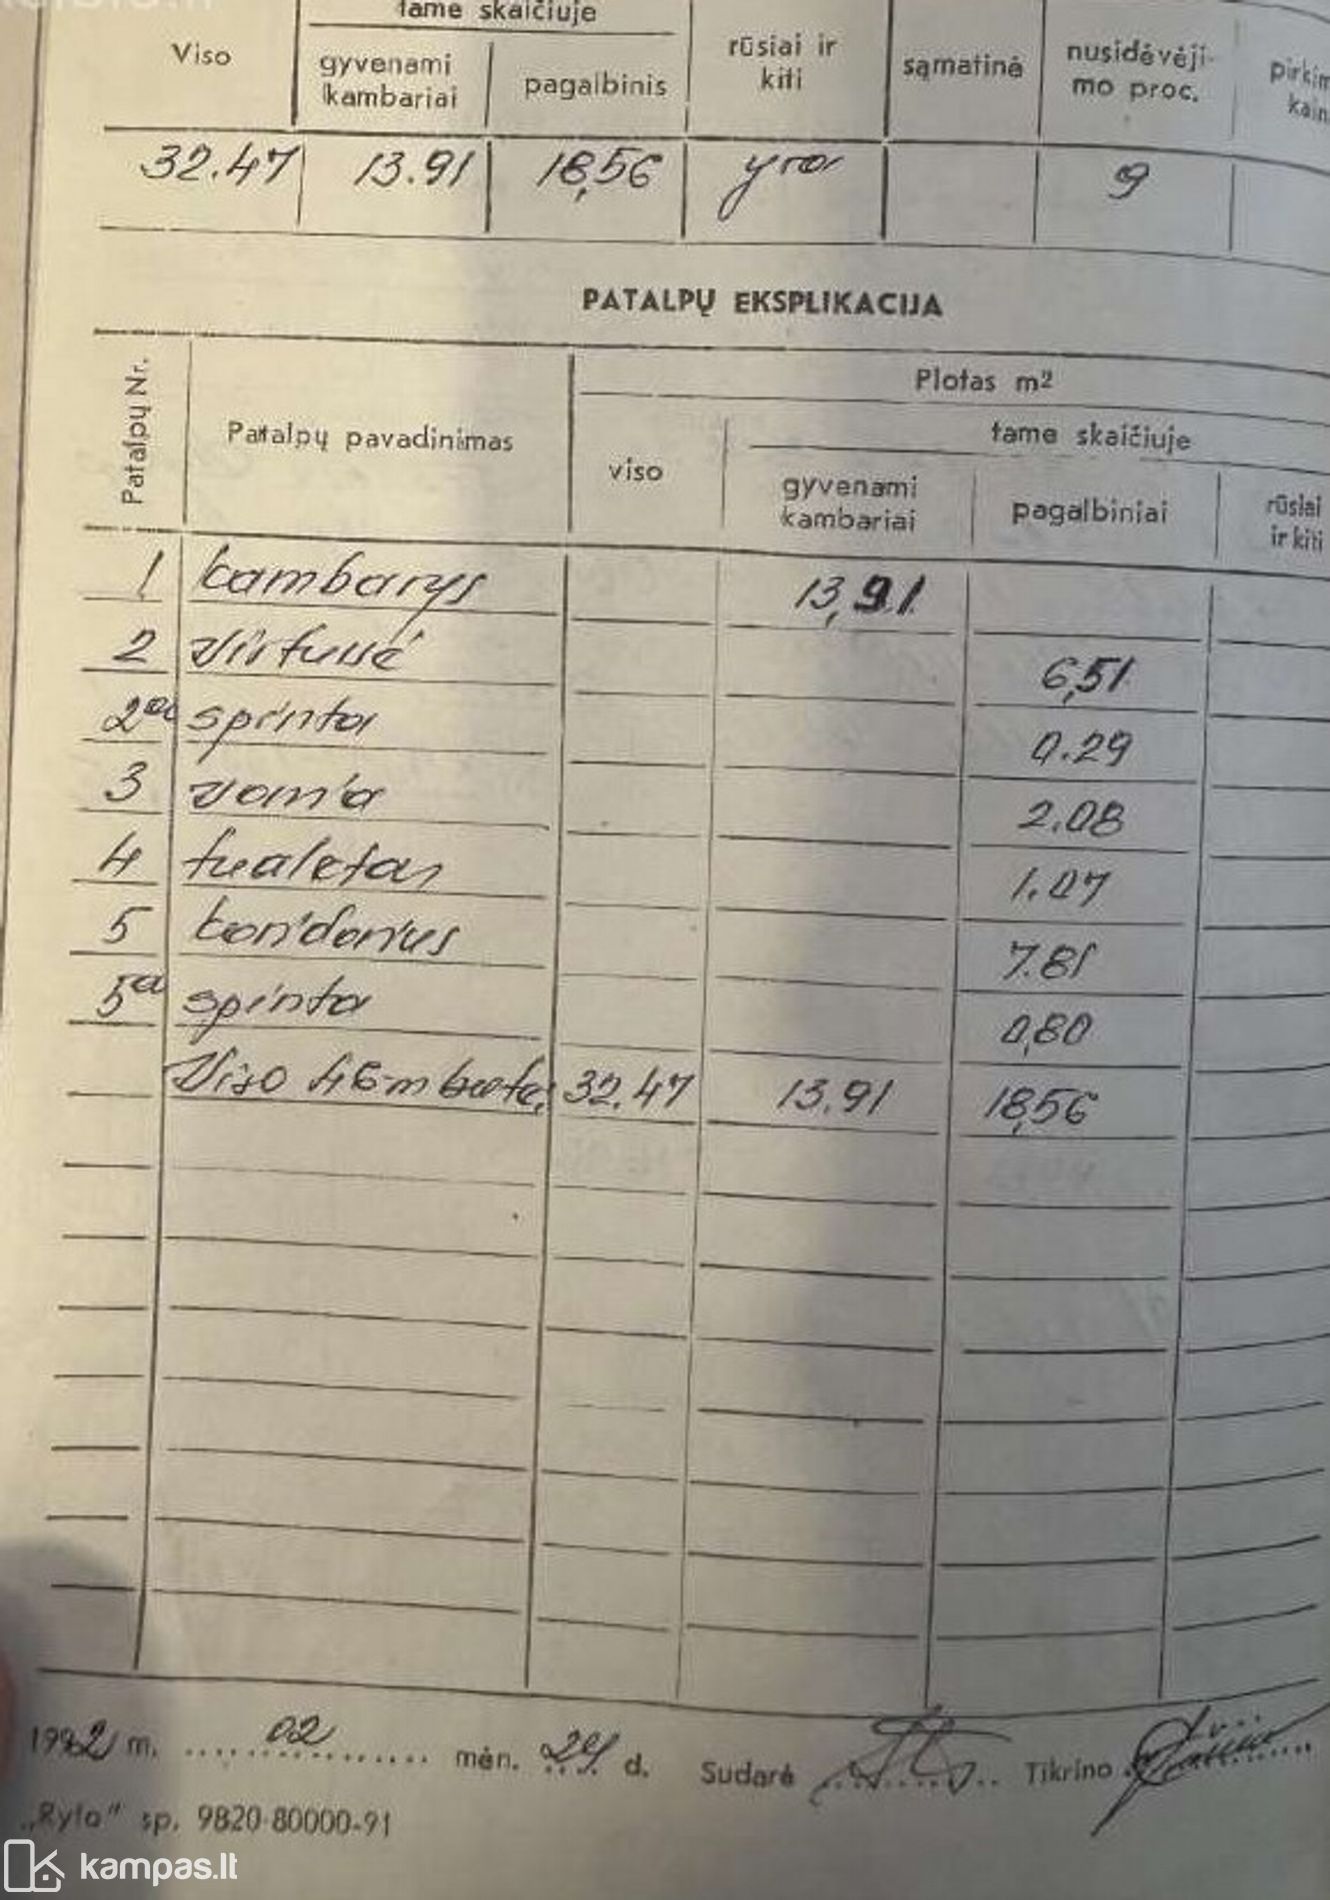 tame skaičiuje
Viso gyvenami kambariai pagalbinis rūsiai ir kiti sąmatinė nusidėvėji- mo proc.
32.47 13.91 18,56 yra 9
PATALPŲ EKSPLIKACIJA
Patalpų Nr. Patalpų pavadinimas Plotas m²
tame skaičiuje
viso gyvenami kambariai pagalbiniai rūsiai ir kiti
1 kambarys 13,91
2 virtuvė 6,51
2a spinta 0.29
3 vonia 2.08
4 tualetas 1.07
5 koridorius 7.81
5a spinta 0,80
Viso 46-m bute: 32.47 13.91 18,56
1992 m. 02 mėn. 24 d. Sudarė Tikrino
„Ryto" sp. 9820-80000-91
kampas.lt